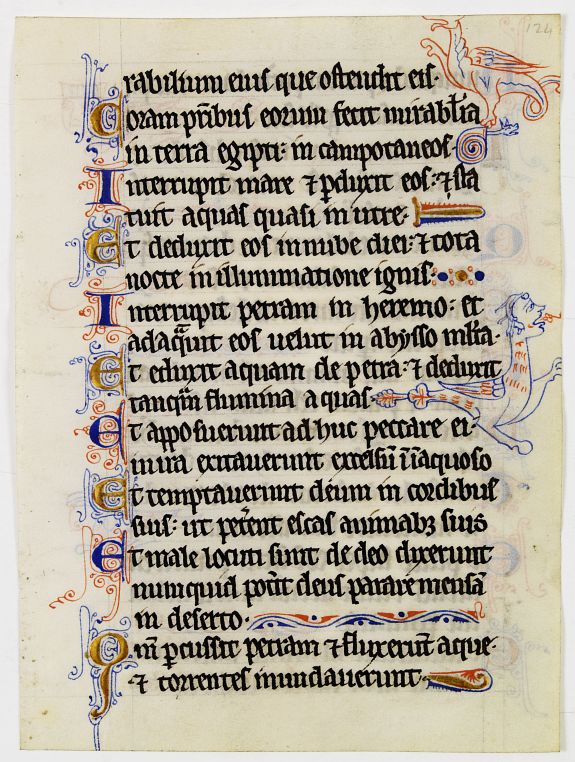 124
rabilium eius que ostendit eis.
Coram pr̄ibus eorum fecit mirabl̄ia
in terra egipti: in campotaneos.
Interrupit mare ⁊ ꝑduxit eos: ⁊ sta
tuit aquas quasi in utre.
Et deduxit eos in nube diei: ⁊ tota
nocte in illuminatione ignis.
Interrupit petram in heremo: et
adaq̄uit eos uelut in abysso ml̄ta.
Et eduxit aquam de petra: ⁊ deduxit
tanqm̄ flumina aquas.
Et apposuerunt ad huc peccare ei:
in ira excitauerunt excelsū ī īaquoso
Et temptauerunt deum in cordibus
suis: ut peterent escas animabꝫ suis
Et male locuti sunt de deo dixerunt
nunquid pot̄it deus parare mensā
in deserto.
Qm̄ ꝑcussit petram ⁊ fluxerūt aque.
⁊ torrentes inundauerunt.